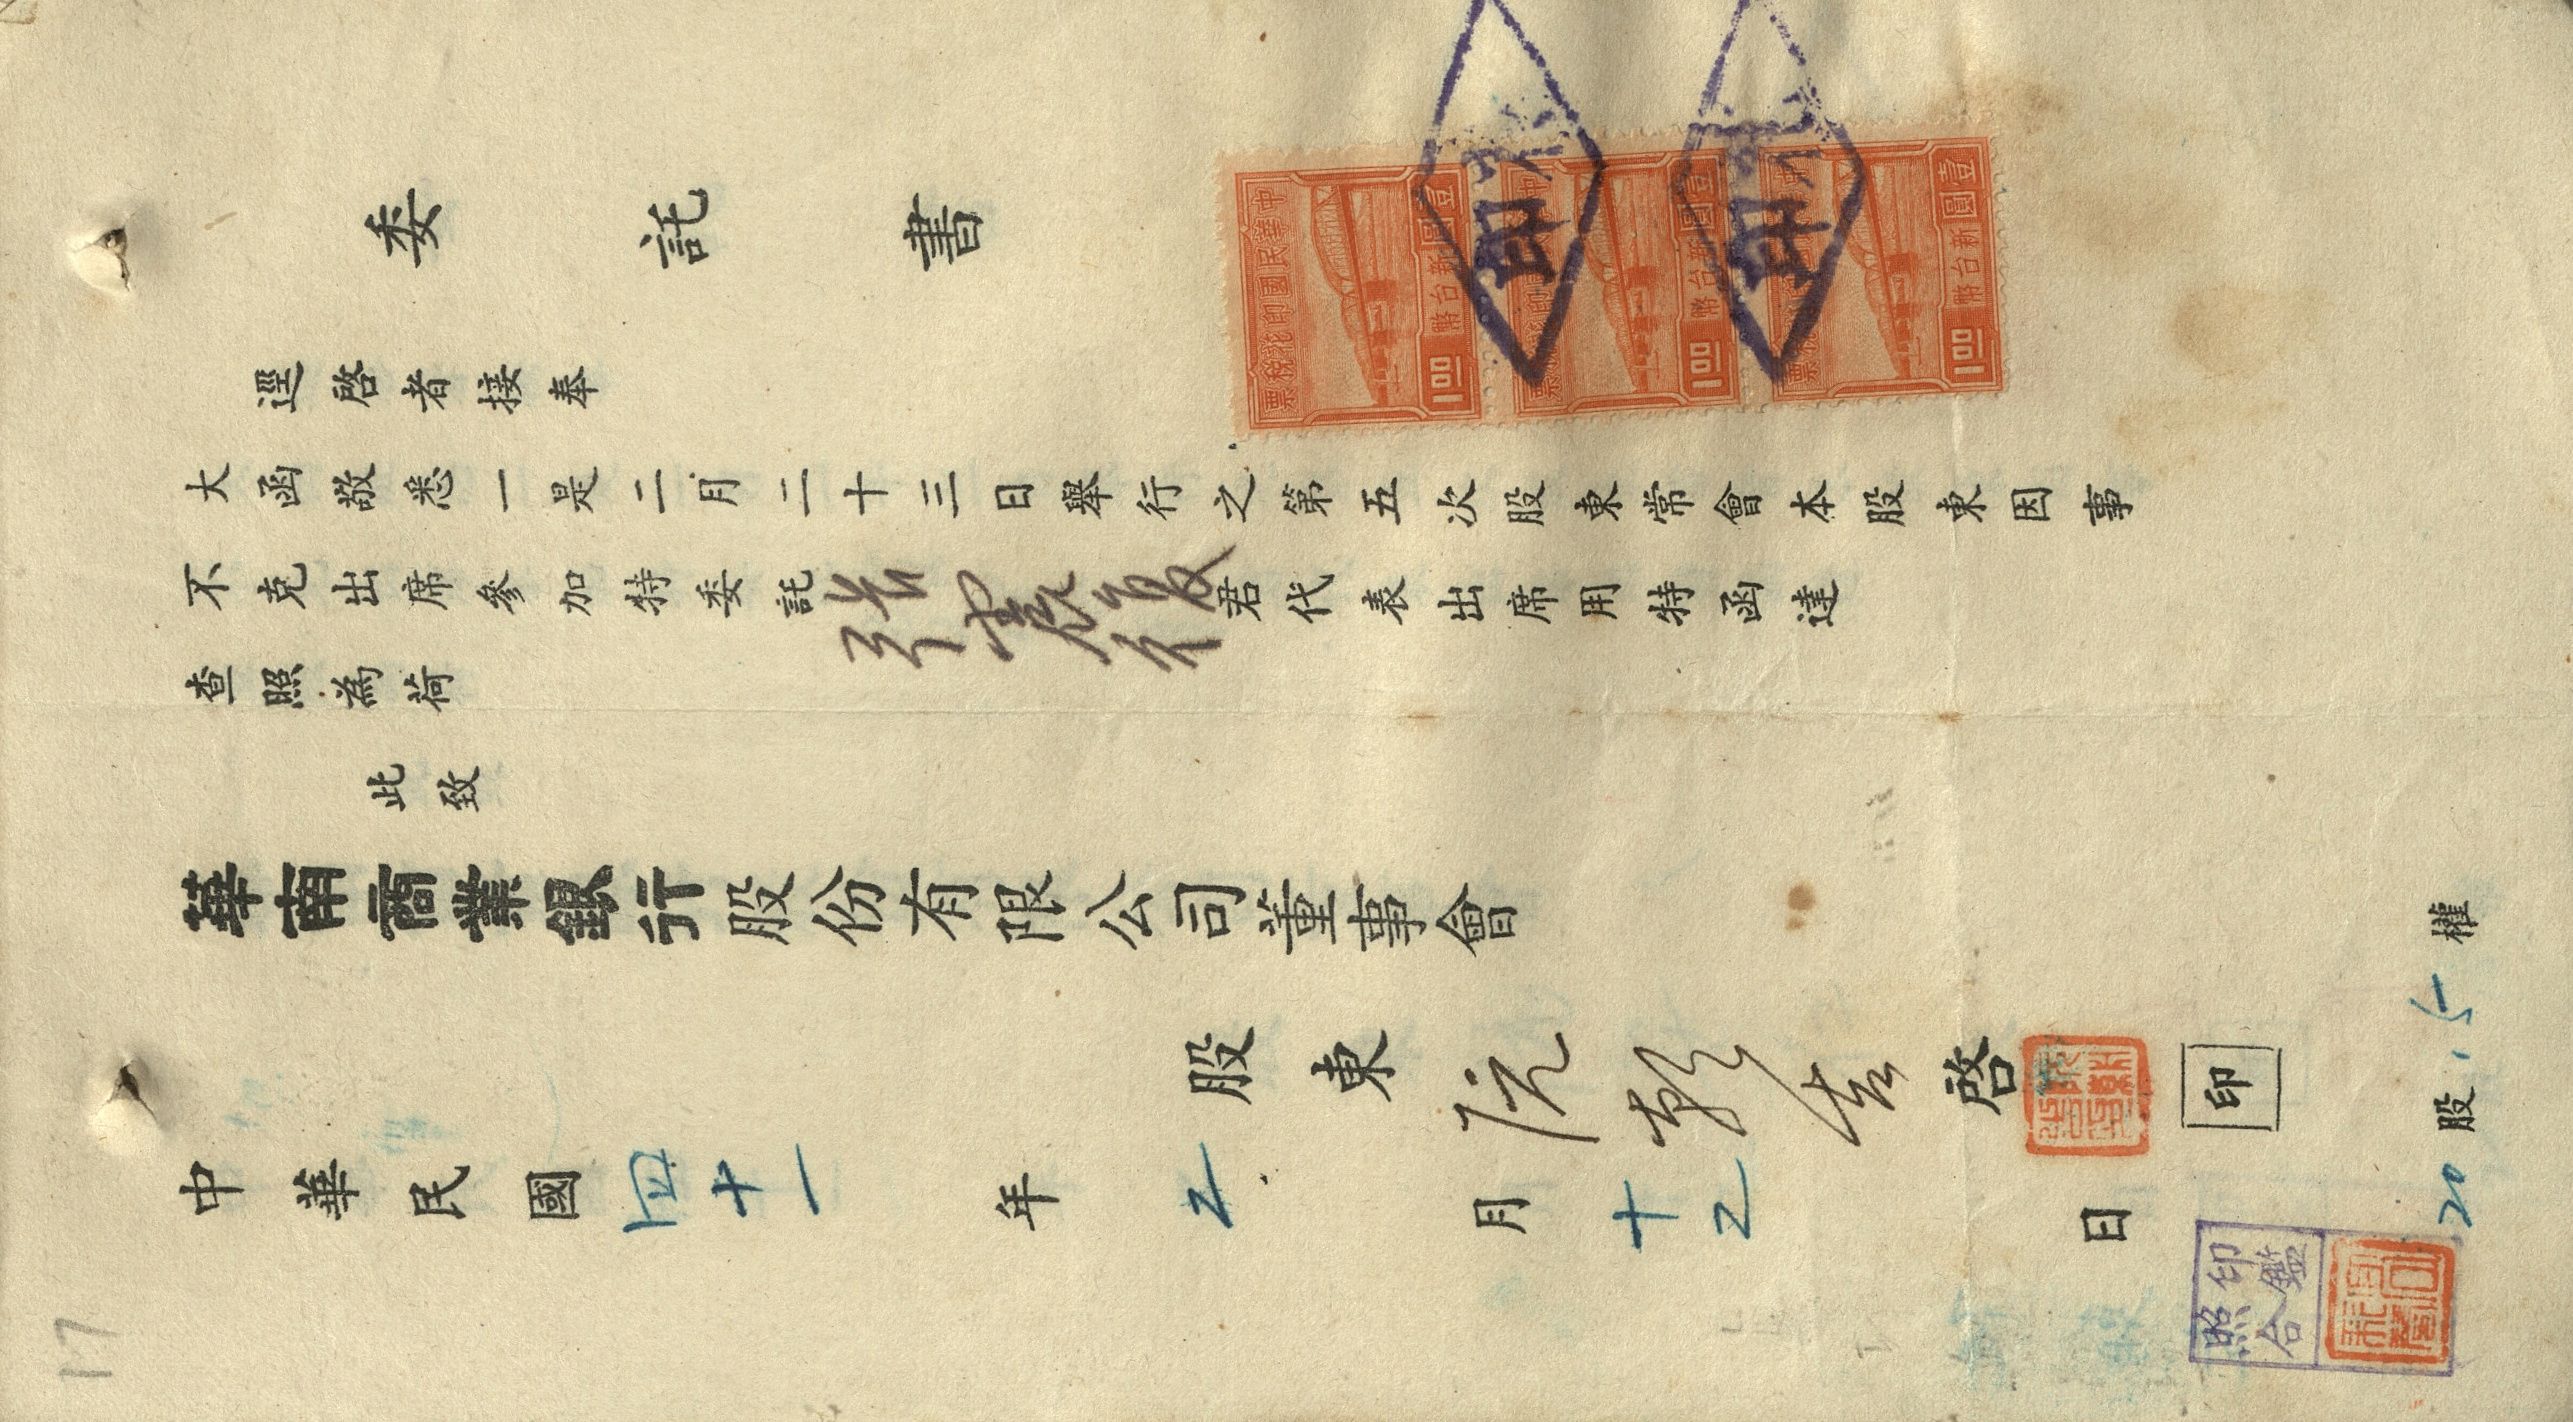 委託書
逕啓者接奉
大函敬悉一是二月二十三日舉行之第五次股東常會本股東因事
不克出席參加特委託張聘三君代表出席用特函達
查照為荷
此致
華南商業銀行股份有限公司董事會
股東阮乾吉啓
印
中華民國四十一年2月十2日
20股,15權
印鑑
照合
17
中華民國印花稅票
壹圓新台幣
1.00
印花稅票
壹圓新台幣
1.00
壹圓新台幣
1.00
印
印